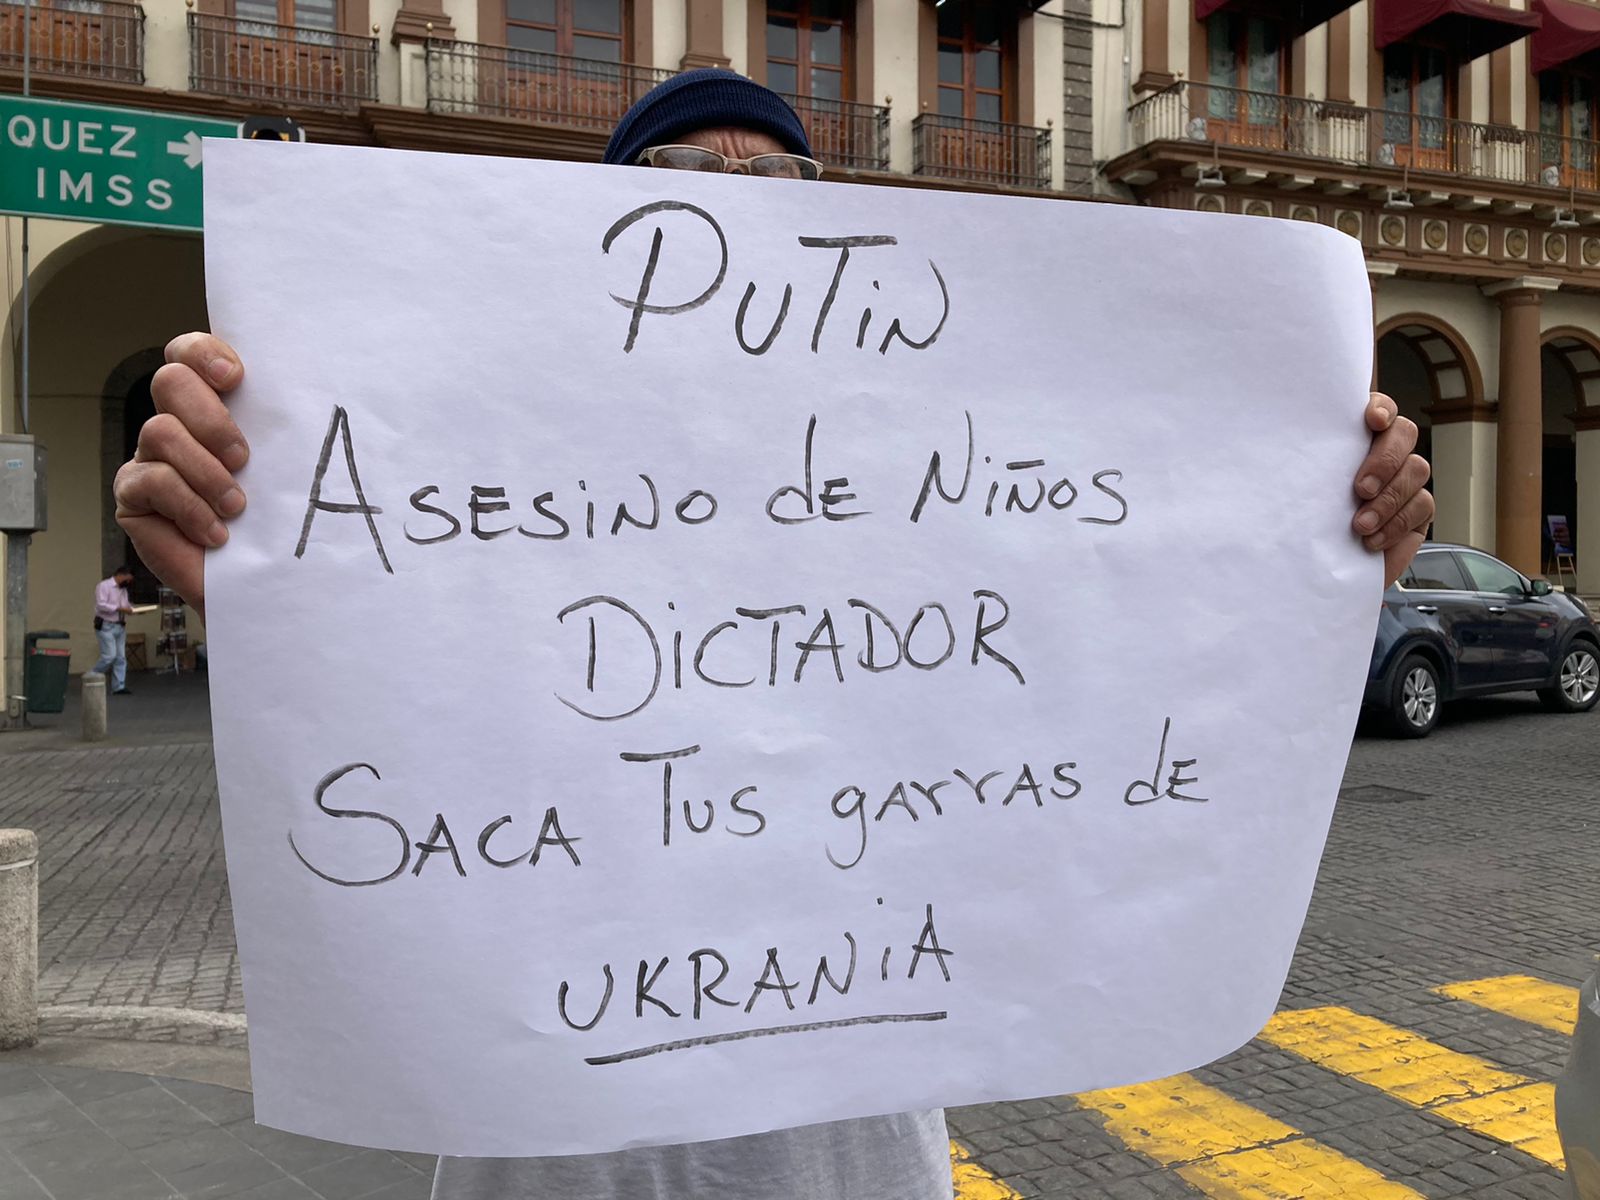 QUEZ
IMSS
PUTIN
ASESINO dE NIÑOS
DICTADOR
SACA TUS garrAS dE
UKRANIA